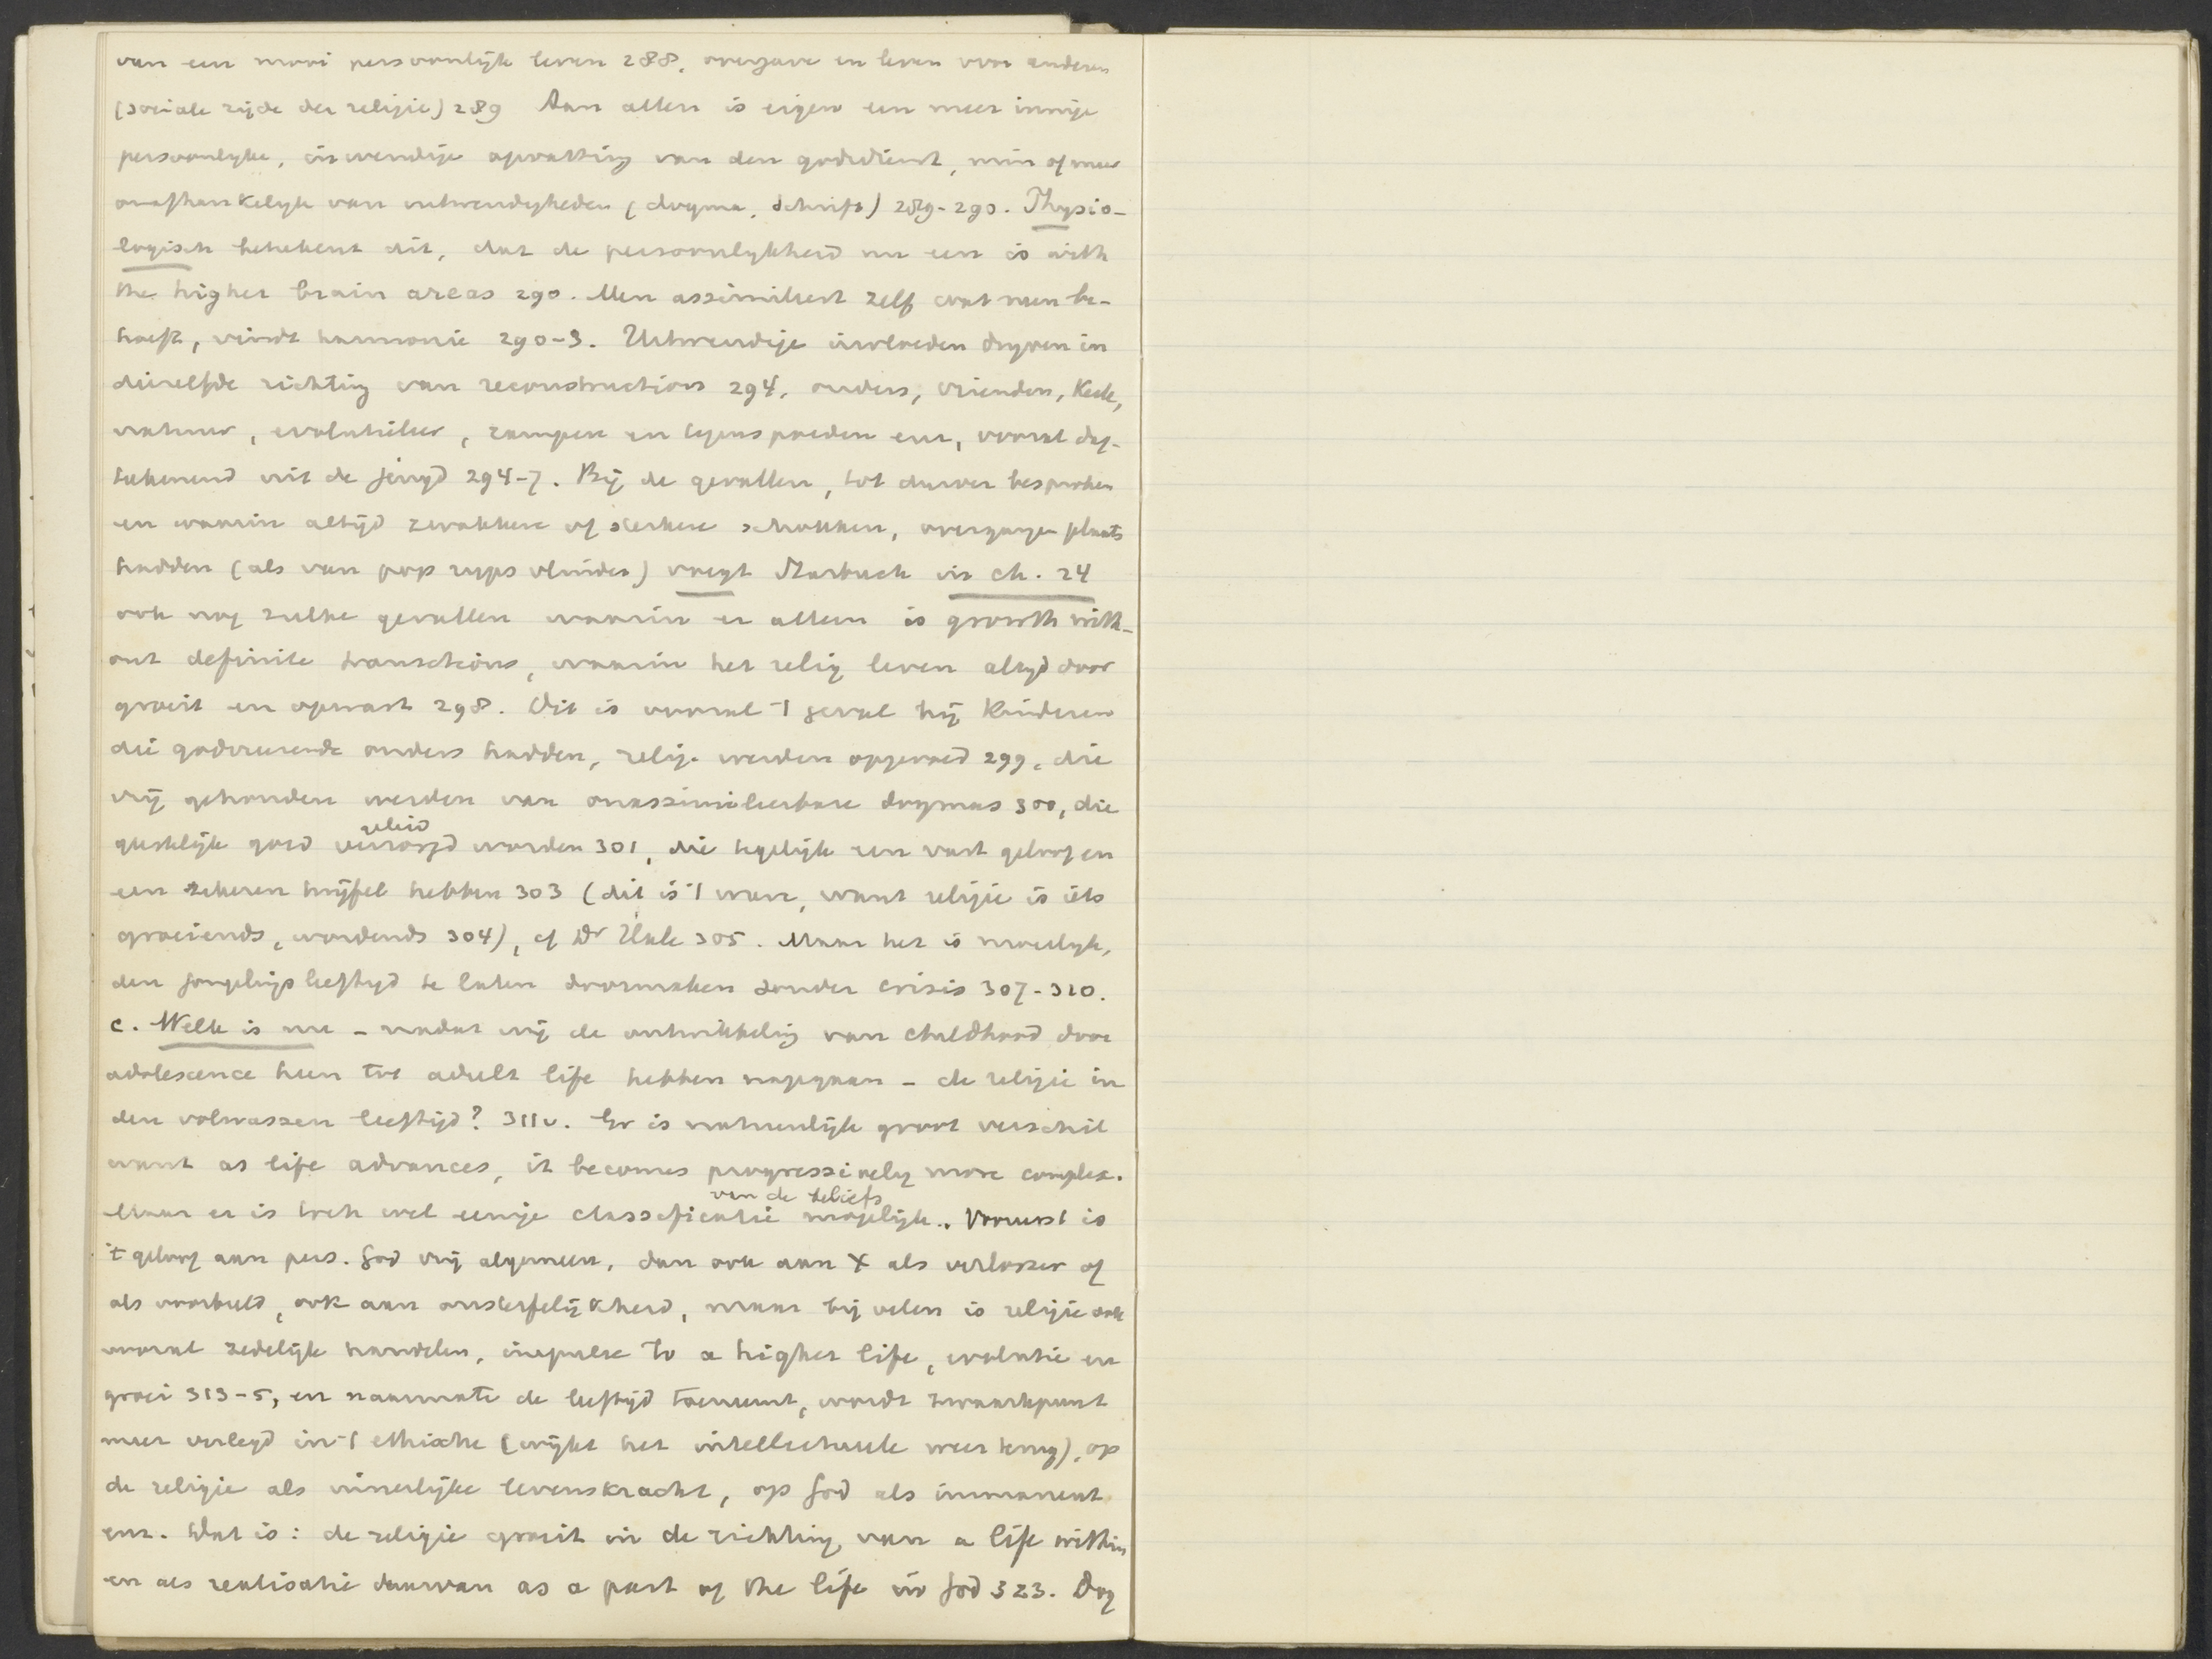 van een mooi persoonlijk leven 288, overgave en leven voor anderen
(sociale zijde der religie) 289 Aan allen is eigen een meer innige
persoonlyke, inwendige opvatting van den godsdienst, min of meer
onafhankelyk van uitwendigheden (dogma, Schrift) 289-290. Physio-
logisch betekent dit, dat de persoonlykheid nu een is with
the higher brain areas 290. Men assimileert zelf wat men be-
hoeft, vindt harmonie 290-3. Uitwendige invloeden dryven in
diezelfde richting van reconstruction 294, ouders, vrienden, Kerk,
natuur, evolutieleer, rampen en tegenspoeden enz, vooral dag-
tekenend uit de jeugd 294-7. Bij de gevallen, tot dusver besproken
en waarin altijd zwakkere of sterkere schokken, overgangen plaats
hadden (als van pop rups vlinder) voegt Starbuck in ch. 24
ook nog zulke gevallen waarin er alleen is growth with-
out definite transitions, waarin het relig leven altyd door
groeit en opwast 298. Dit is vooral 't geval bij Kinderen
die godvrezende ouders hadden, relig. werden opgevoed 299, die
vrij gehouden werden van onassimileerbare dogmas 300, die
geleid
geestelijk goed verzorgd worden 301, die tegelijk een vast geloof en
een zekeren twijfel hebben 303 (dit is 't ware, want religie is iets
groeiends, wordends 304), cf Dr Hale 305. Maar het is moeilyk,
den jongelingsleeftyd te laten doormaken zonder crisis 307-310.
c. Welk is nu - nadat wij de ontwikkeling van childhood door
adolescence heen tot adult life hebben nagegaan - de religie in
den volwassen leeftijd? 311v. Er is natuurlijk groot verschil
want as life advances, it becomes progressively more complex.
van de beliefs
Maar er is toch wel eenige classificatie mogelijk. Vooreerst is
't geloof aan pers. God vrij algemeen, dan ook aan X als verlosser of
als voorbeeld, ook aan onsterfelijkheid, maar bij velen is religie ook
vooral zedelijk handelen, impulse to a higher life, evolutie en
groei 313-5, en naarmate de leeftijd toeneemt, wordt zwaartepunt
meer verlegd in 't ethische (wijkt het intellectueele meer terug), op
de religie als innerlijke levenskracht, op God als immanent
enz. Dat is: de religie groeit in de richting van a life within
en als realisatie daarvan as a part of the life in God 323. Dog